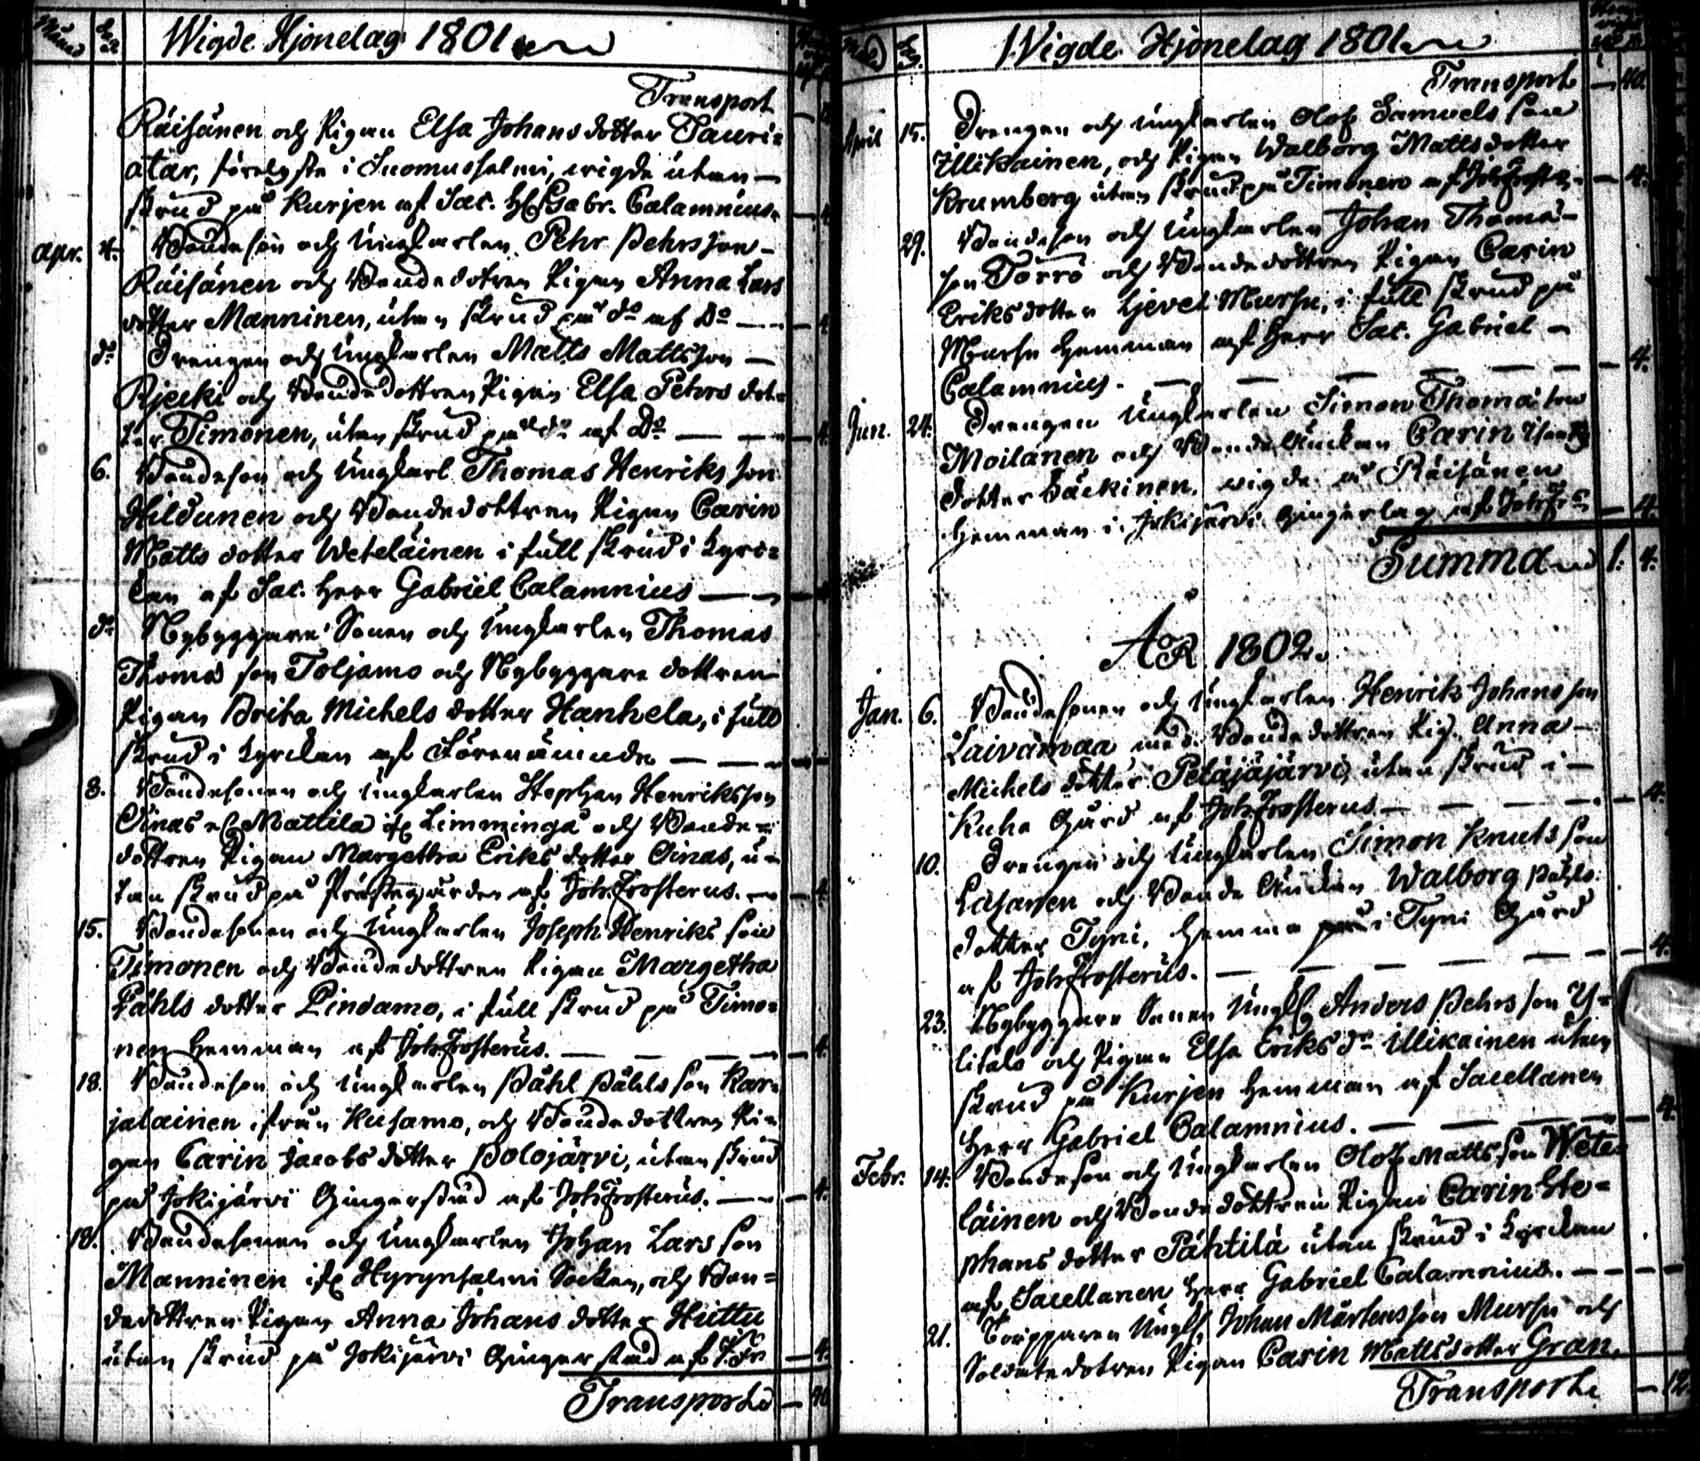 Wigde Hjonelag 1801.
Transport
Räisänen och Pigan Elsa Johansdotter Tauri=
atar, förelgste i Suomussalmi, wigde utan
skrud på Kurjen af Sac. H Gabr. Calamnius.
Apr. 4. Bondeson och Ungkarlen Pehr Pehrsson
Räisänen och Bondedotren Pigan Anna Lars
dotter Manninen, utan skrud på do af Do
do Drengen och Ungkarlen Matts Mattsson
Rjecki och Bondedottren Pigan Elsa Pehrs dot=
ter Timonen, utan skrud på do af Do 4.
6. Bondeson och Ungkarl Thomas Henriks son
Hildunen och Bondedottren Pigan Carin
Matts dotter Weteläinen i full skrud i Kyrc=
kan af Sac. Herr Gabriel Calamnius
do Nybyggare Sonen och Ungkarlen Thomas
Thomas son Toljamo och Nybyggare dottren
Pigan Brita Michels dotter Hanhela, i full
skrud i Kyrckan af Förenämnde
8. Bondesonen och Ungkarlen Stephan Henriksson
Oinas el Mattila if Limminga och Bonde=
dottren Pigan Margetha Eriks dotter Oinas, u=
tan skrud på Prästegården af Joh. Frosterus. 4
15. Bondesonen och Ungkarlen Joseph Henriks son
Timonen och Bondedottren Pigan Margetha
Påhls dotter Pindamo, i full skrud på Timo=
nen Hemman af Joh. Frosterus. 4
18. Bondeson och Ungkarlen Påhl Påhls son Kar=
jalainen ifrån Kusamo, och Bondedottren Pi=
gan Carin Jacobs dotter Polojärvi, utan skrud
på Jokijärvi Gingerstad af Joh. Frosterus. 4.
18. Bondesonen och Ungkarlen Johan Lars son
Manninen if Hyrynsalmi Socken, och Bon=
dedottren Pigan Anna Johans dotter Huttu
utan skrud på Jokijärvi Gingerstad af J. Fr 4.
Transport 40
Wigde Hjonelag 1801.
Transport 40.
April 15. Drengen och Ungkarlen Olof Samuels son
Illikainen, och Pigan Walborg Mattsdotter
Krumberg utan skrud på Timonen af Joh. Froste. 4.
29. Bondeson och Ungkarlen Johan Thoma=
son Törrö och Bondedottren Pigan Carin
Eriksdotter Ljevet Mursu, i full skrud på
Mursu Hemman af Herr Sac. Gabriel
Calamnius. 4.
Jun. 24. Drengen Ungkarlen Simon Thoma son
Moilanen och Bonde Änckan Carin
dotter Säckinen, wigde å Räisänen
Hemman i Jokijärvi Gingerlag af Joh. Fr 4.
Summa 1. 4.
ÅR 1802.
Jan. 6. Bondesonen och Ungkarlen Henrik Johans son
Laivamaa med Bondedottren Pig. Anna
Michels dotter Peläjäjärvi, utan skrud i
Kuha Gård af Joh. Frosterus. 4.
10. Drengen och Ungkarlen Simon Knuts son
Lasanen och Bonde Änckan Walborg Påhls
dotter Tyni, hemma i Tyni Gård
af Joh. Frosterus. 4.
23. Nybyggare Sonen Ungk Anders Pehrs son Y=
litalo och Pigan Elsa Eriks do Illikainen utan
skrud på Kurjen Hemman af Sacellanen
Herr Gabriel Calamnius. 4.
Febr. 14. Bondeson och Ungkarlen Olof Matts son Wete=
läinen och Bonde dottren Pigan Carin Ste=
phans dotter Pähtilä utan skrud i Kyrckan
af Sacellanen Herr Gabriel Calamnius.
21. Torpparen Ungk Johan Mårtensson Mursu och
Soldatedotren Pigan Carin Mattsdotter Gran.
Transport 12.